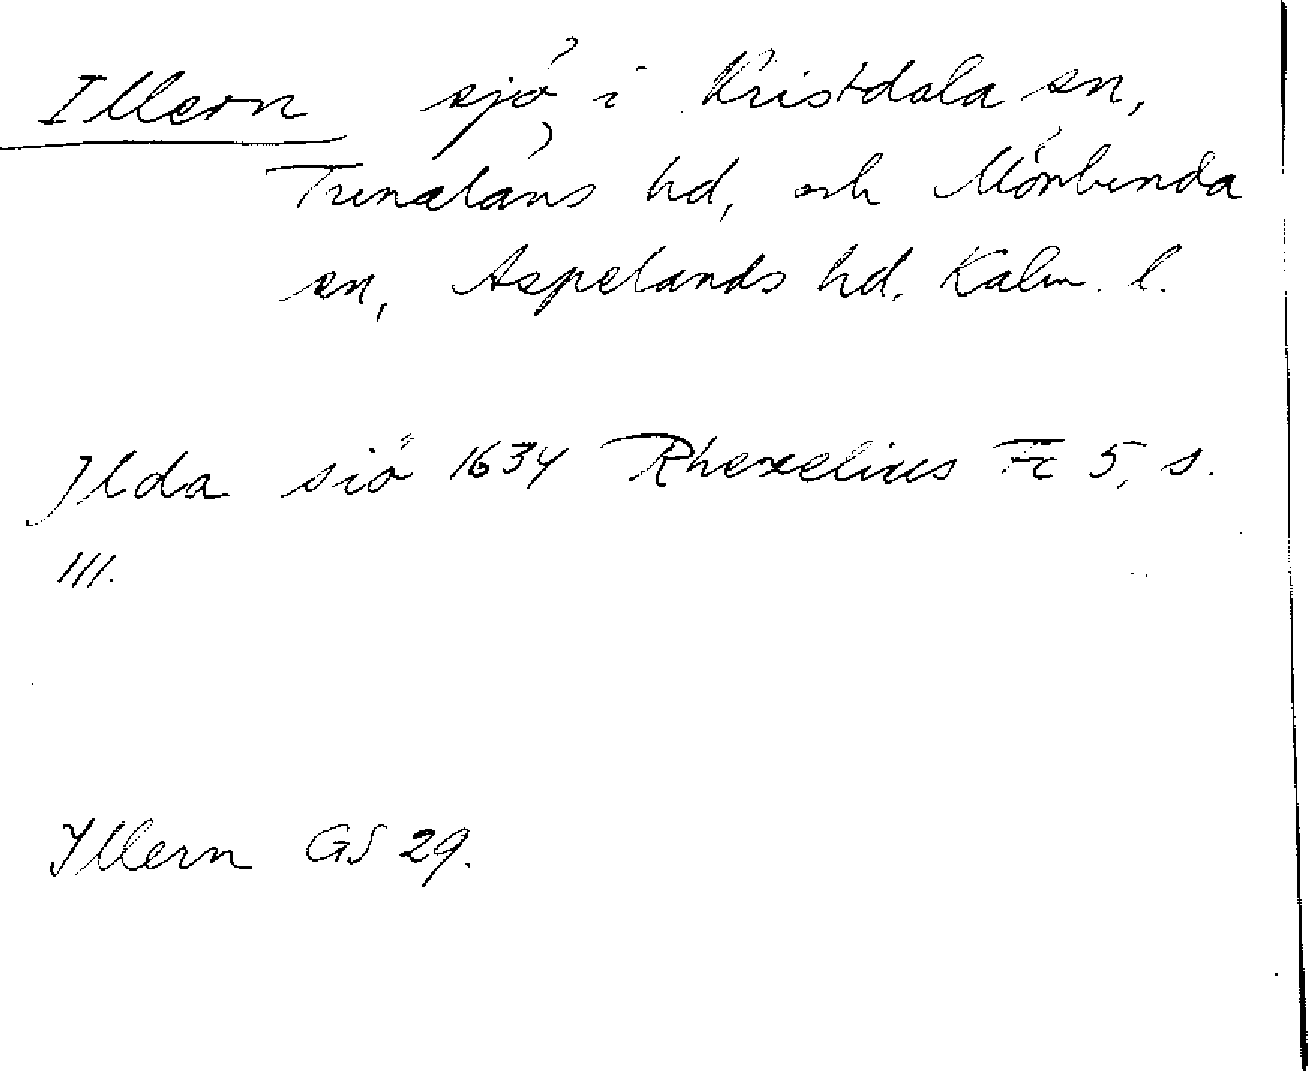 Illern sjö i Kristdala sn,
Tunaläns hd, och Mörlunda
sn, Aspelands hd. Kalm. l.
Jlda siö 1634 Rhezelius Fc 5, s.
111.
Yllern GS 29.